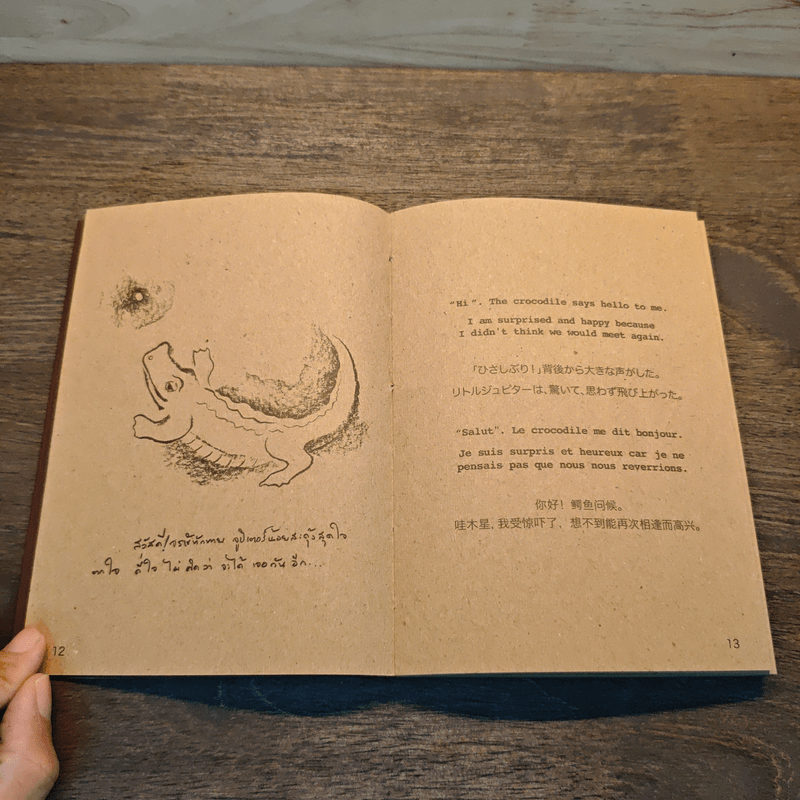 สวัสดี! จรเข้ทักทาย จูปิเตอร์น้อยสะดุ้งสุดใจ
ตกใจ ดีใจ ไม่คิดว่า จะได้ เจอกัน อีก...
12
"Hi". The crocodile says hello to me.
I am surprised and happy because
I didn't think we would meet again.
「ひさしぶり！」背後から大きな声がした。
リトルジュピターは、驚いて、思わず飛び上がった。
"Salut". Le crocodile me dit bonjour.
Je suis surpris et heureux car je ne
pensais pas que nous nous reverrions.
你好！鳄鱼问候。
哇木星，我受惊吓了、想不到能再次相逢而高兴。
13